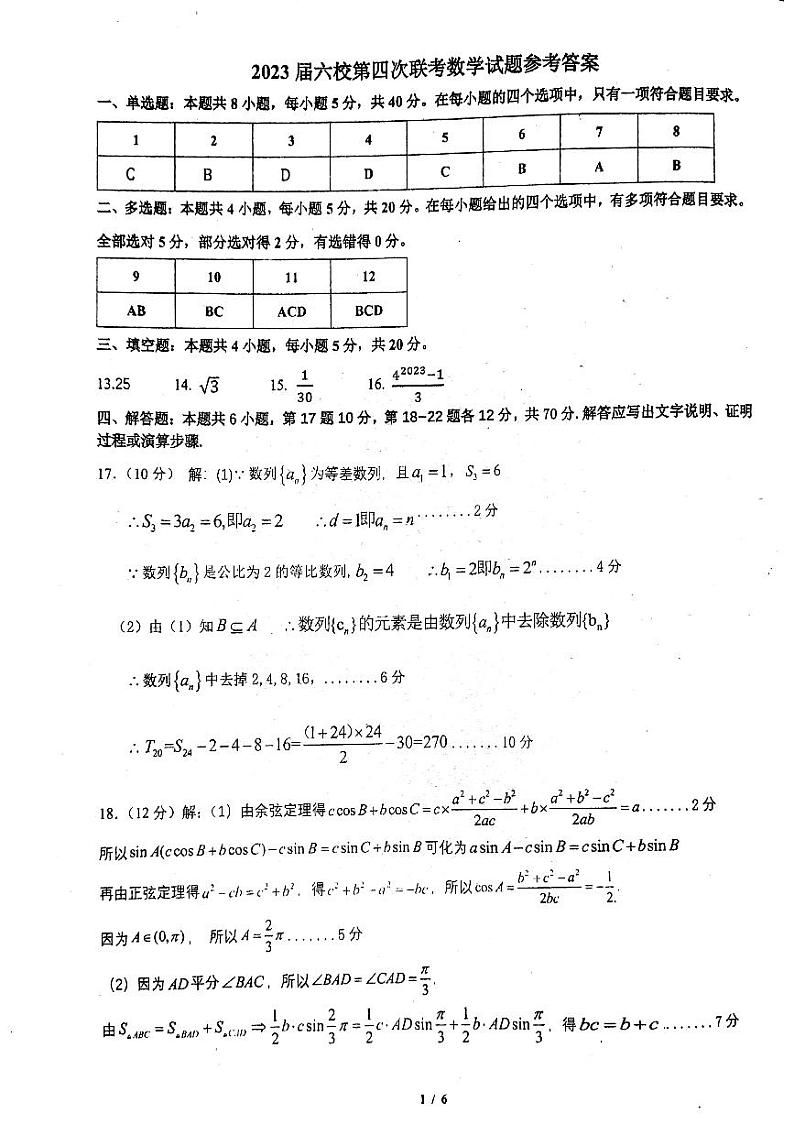 2023 届六校第四次联考数学试题参考答案
一、单选题：本题共 8 小题，每小题 5 分，共 40 分。在每小题的四个选项中，只有一项符合题目要求。
1 2 3 4 5 6 7 8
C B D D C B A B
二、多选题：本题共 4 小题，每小题 5 分，共 20 分。在每小题给出的四个选项中，有多项符合题目要求。
全部选对 5 分，部分选对得 2 分，有选错得 0 分。
9 10 11 12
AB BC ACD BCD
三、填空题：本题共 4 小题，每小题 5 分，共 20 分。
13.25 14. √3 15. 1/30 16. (4^2023−1)/3
四、解答题：本题共 6 小题，第 17 题 10 分，第 18-22 题各 12 分，共 70 分.解答应写出文字说明、证明
过程或演算步骤.
17.（10 分） 解：(1)∵ 数列{a_n}为等差数列，且a_1=1，S_3=6
∴S_3=3a_2=6,即a_2=2 ∴d=1即a_n=n·········2 分
∵数列{b_n}是公比为 2 的等比数列, b_2=4 ∴b_1=2即b_n=2^n........4 分
（2）由（1）知B⊆A ∴数列{c_n}的元素是由数列{a_n}中去除数列{b_n}
∴数列{a_n}中去掉 2,4,8,16，........6 分
∴T_20=S_24−2−4−8−16=(1+24)×24/2−30=270.......10 分
18.（12 分）解：（1）由余弦定理得c cos B+b cos C=c×(a²+c²−b²)/2ac+b×(a²+b²−c²)/2ab=a.......2 分
所以sin A(c cos B+b cos C)−c sin B=c sin C+b sin B可化为a sin A−c sin B=c sin C+b sin B
再由正弦定理得a²−cb=c²+b²，得c²+b²−a²=−bc，所以cos A=(b²+c²−a²)/2bc=−1/2.
因为A∈(0,π)， 所以A=2/3π.......5 分
（2）因为AD平分∠BAC，所以∠BAD=∠CAD=π/3.
由S_△ABC=S_△BAD+S_△CAD⇒1/2b·c sin 2/3π=1/2c·AD sin π/3+1/2b·AD sin π/3，得bc=b+c.......7 分
1 / 6